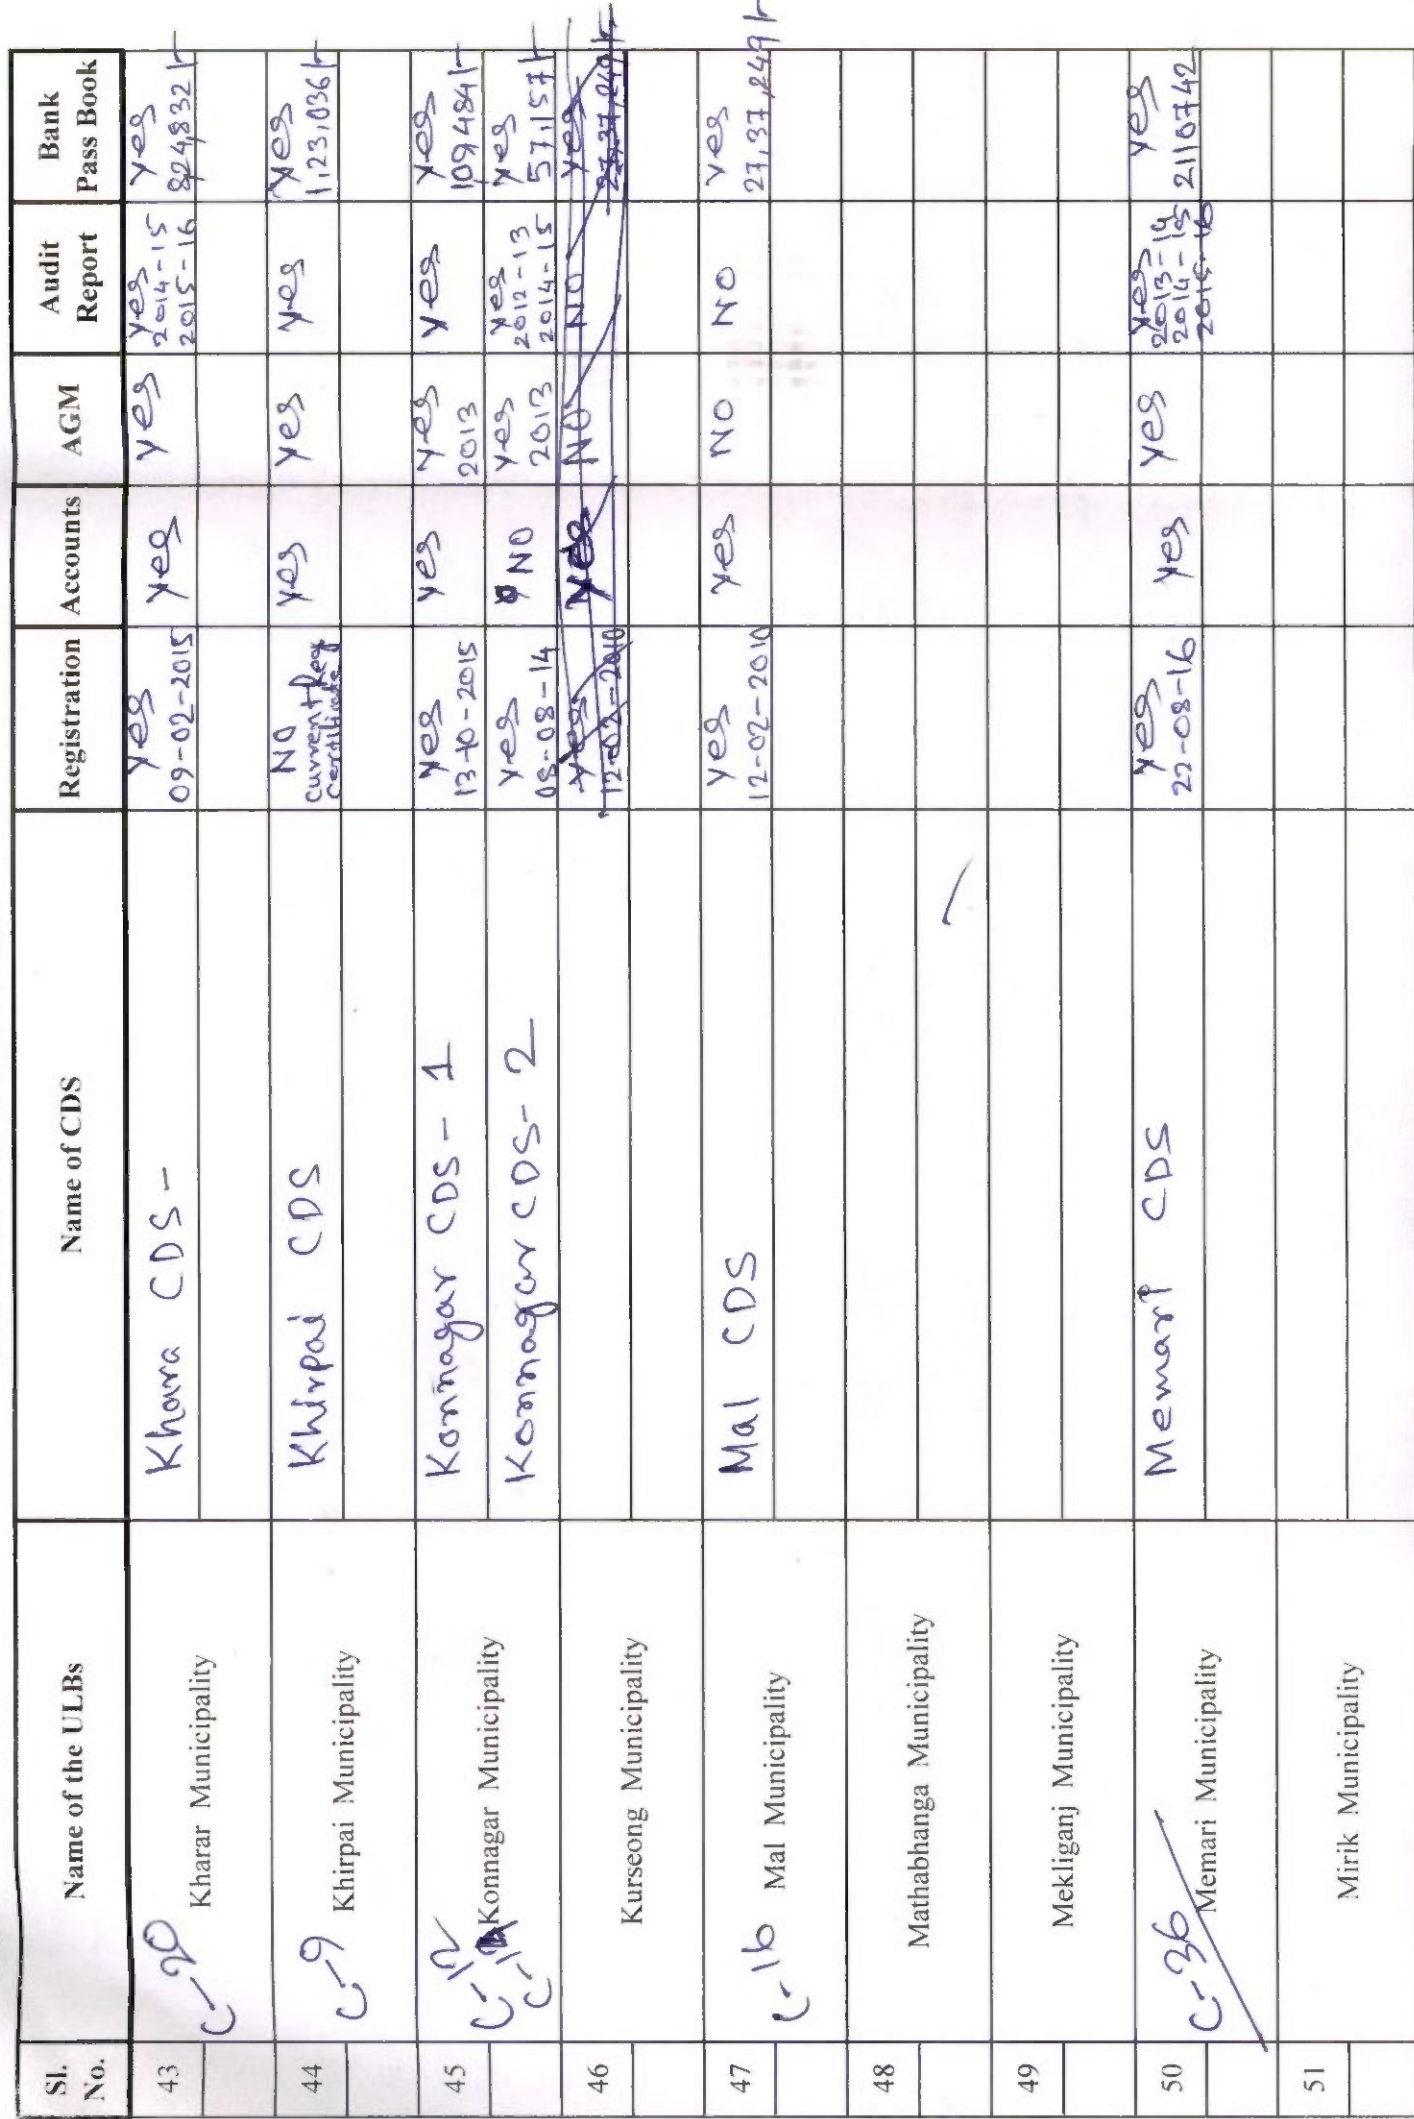 Sl. No.
Name of the ULBs
Name of CDS
Registration
Accounts
AGM
Audit Report
Bank Pass Book
43
C-20
Kharar Municipality
Khara CDS -
Yes
09-02-2015
yes
yes
yes
2014-15
2015-16
yes
824,832/-
44
C-9
Khirpai Municipality
Khirpai CDS
NO
current Reg
Certificate
yes
yes
yes
Yes
1,23,036/-
45
C-12
C-12
Konnagar Municipality
Konnagar CDS - 1
Yes
13-10-2015
yes
yes
2013
yes
yes
109484/-
Konnagar CDS - 2
yes
08-08-14
NO
yes
2013
yes
2012-13
2014-15
yes
57,157/-
46
Kurseong Municipality
yes
12-02-2010
yes
NO
NO
yes
27,37,249/-
47
C-16
Mal Municipality
Mal CDS
yes
12-02-2010
yes
NO
NO
yes
27,37,249/-
48
Mathabhanga Municipality
49
Mekliganj Municipality
50
C-36
Memari Municipality
Memari CDS
yes
22-08-16
yes
yes
yes
2013-14
2014-15
2015-16
yes
2110742
51
Mirik Municipality